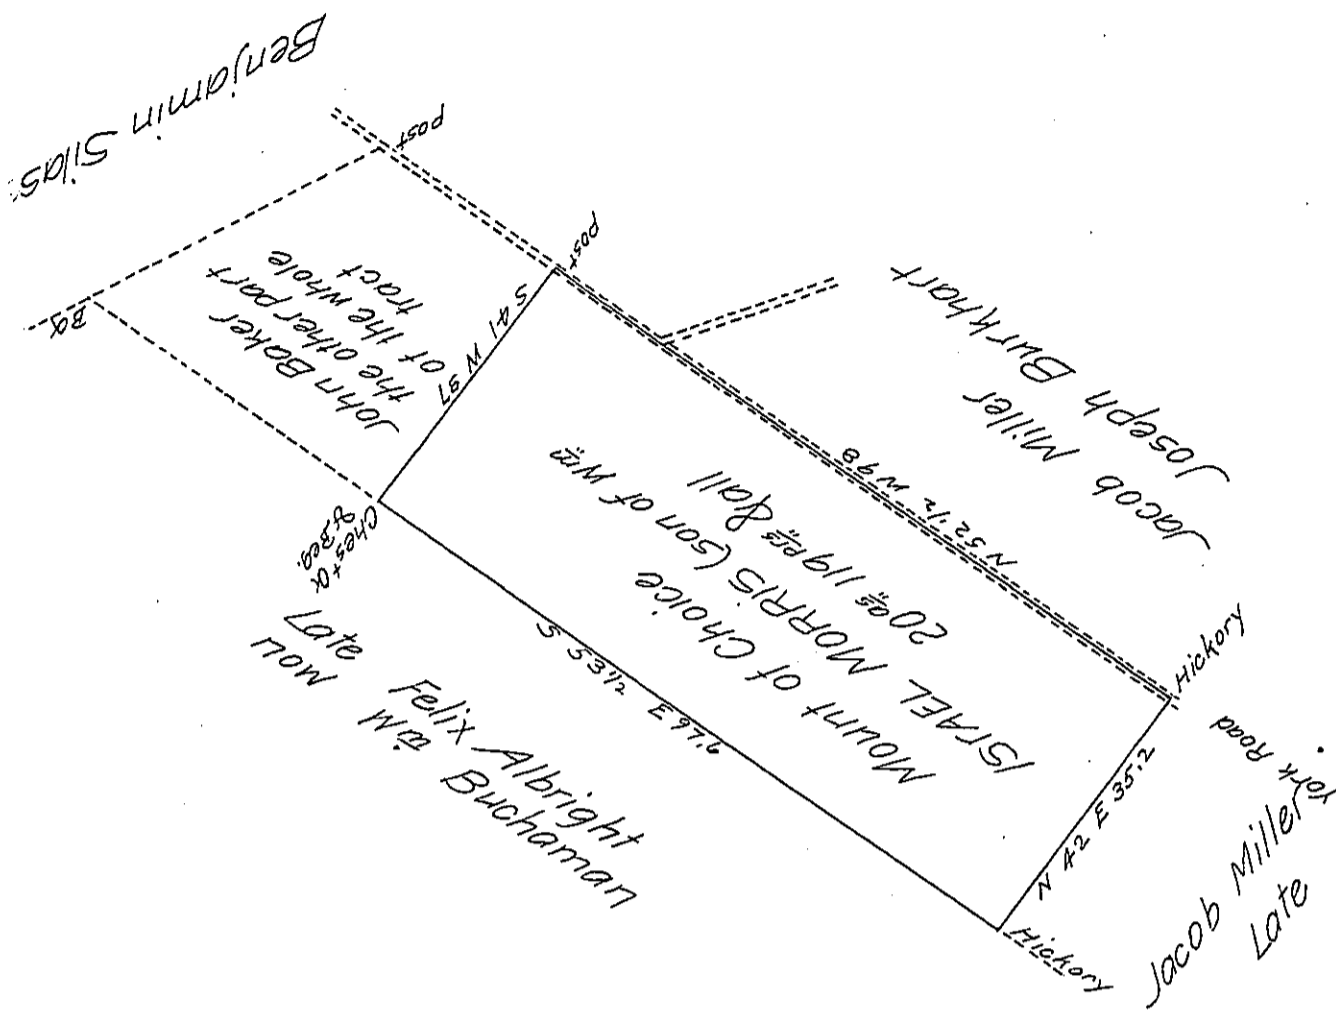 Benjamin Silas
post
post
BO
John Baker
the other part
of the whole
tract
S 41 W 37
Jacob Miller
Joseph Burkhart
N 52 1/2 W 98
Mount of Choice
ISRAEL MORRIS (son of Wm
20 as 119 prs & all
Chest Ok
& Beg.
S 53 1/2 E 97.6
Late Felix Albright
now Wm Buchaman
Hickory
York Road
N 42 E 35.2
Hickory
Jacob Miller
Late